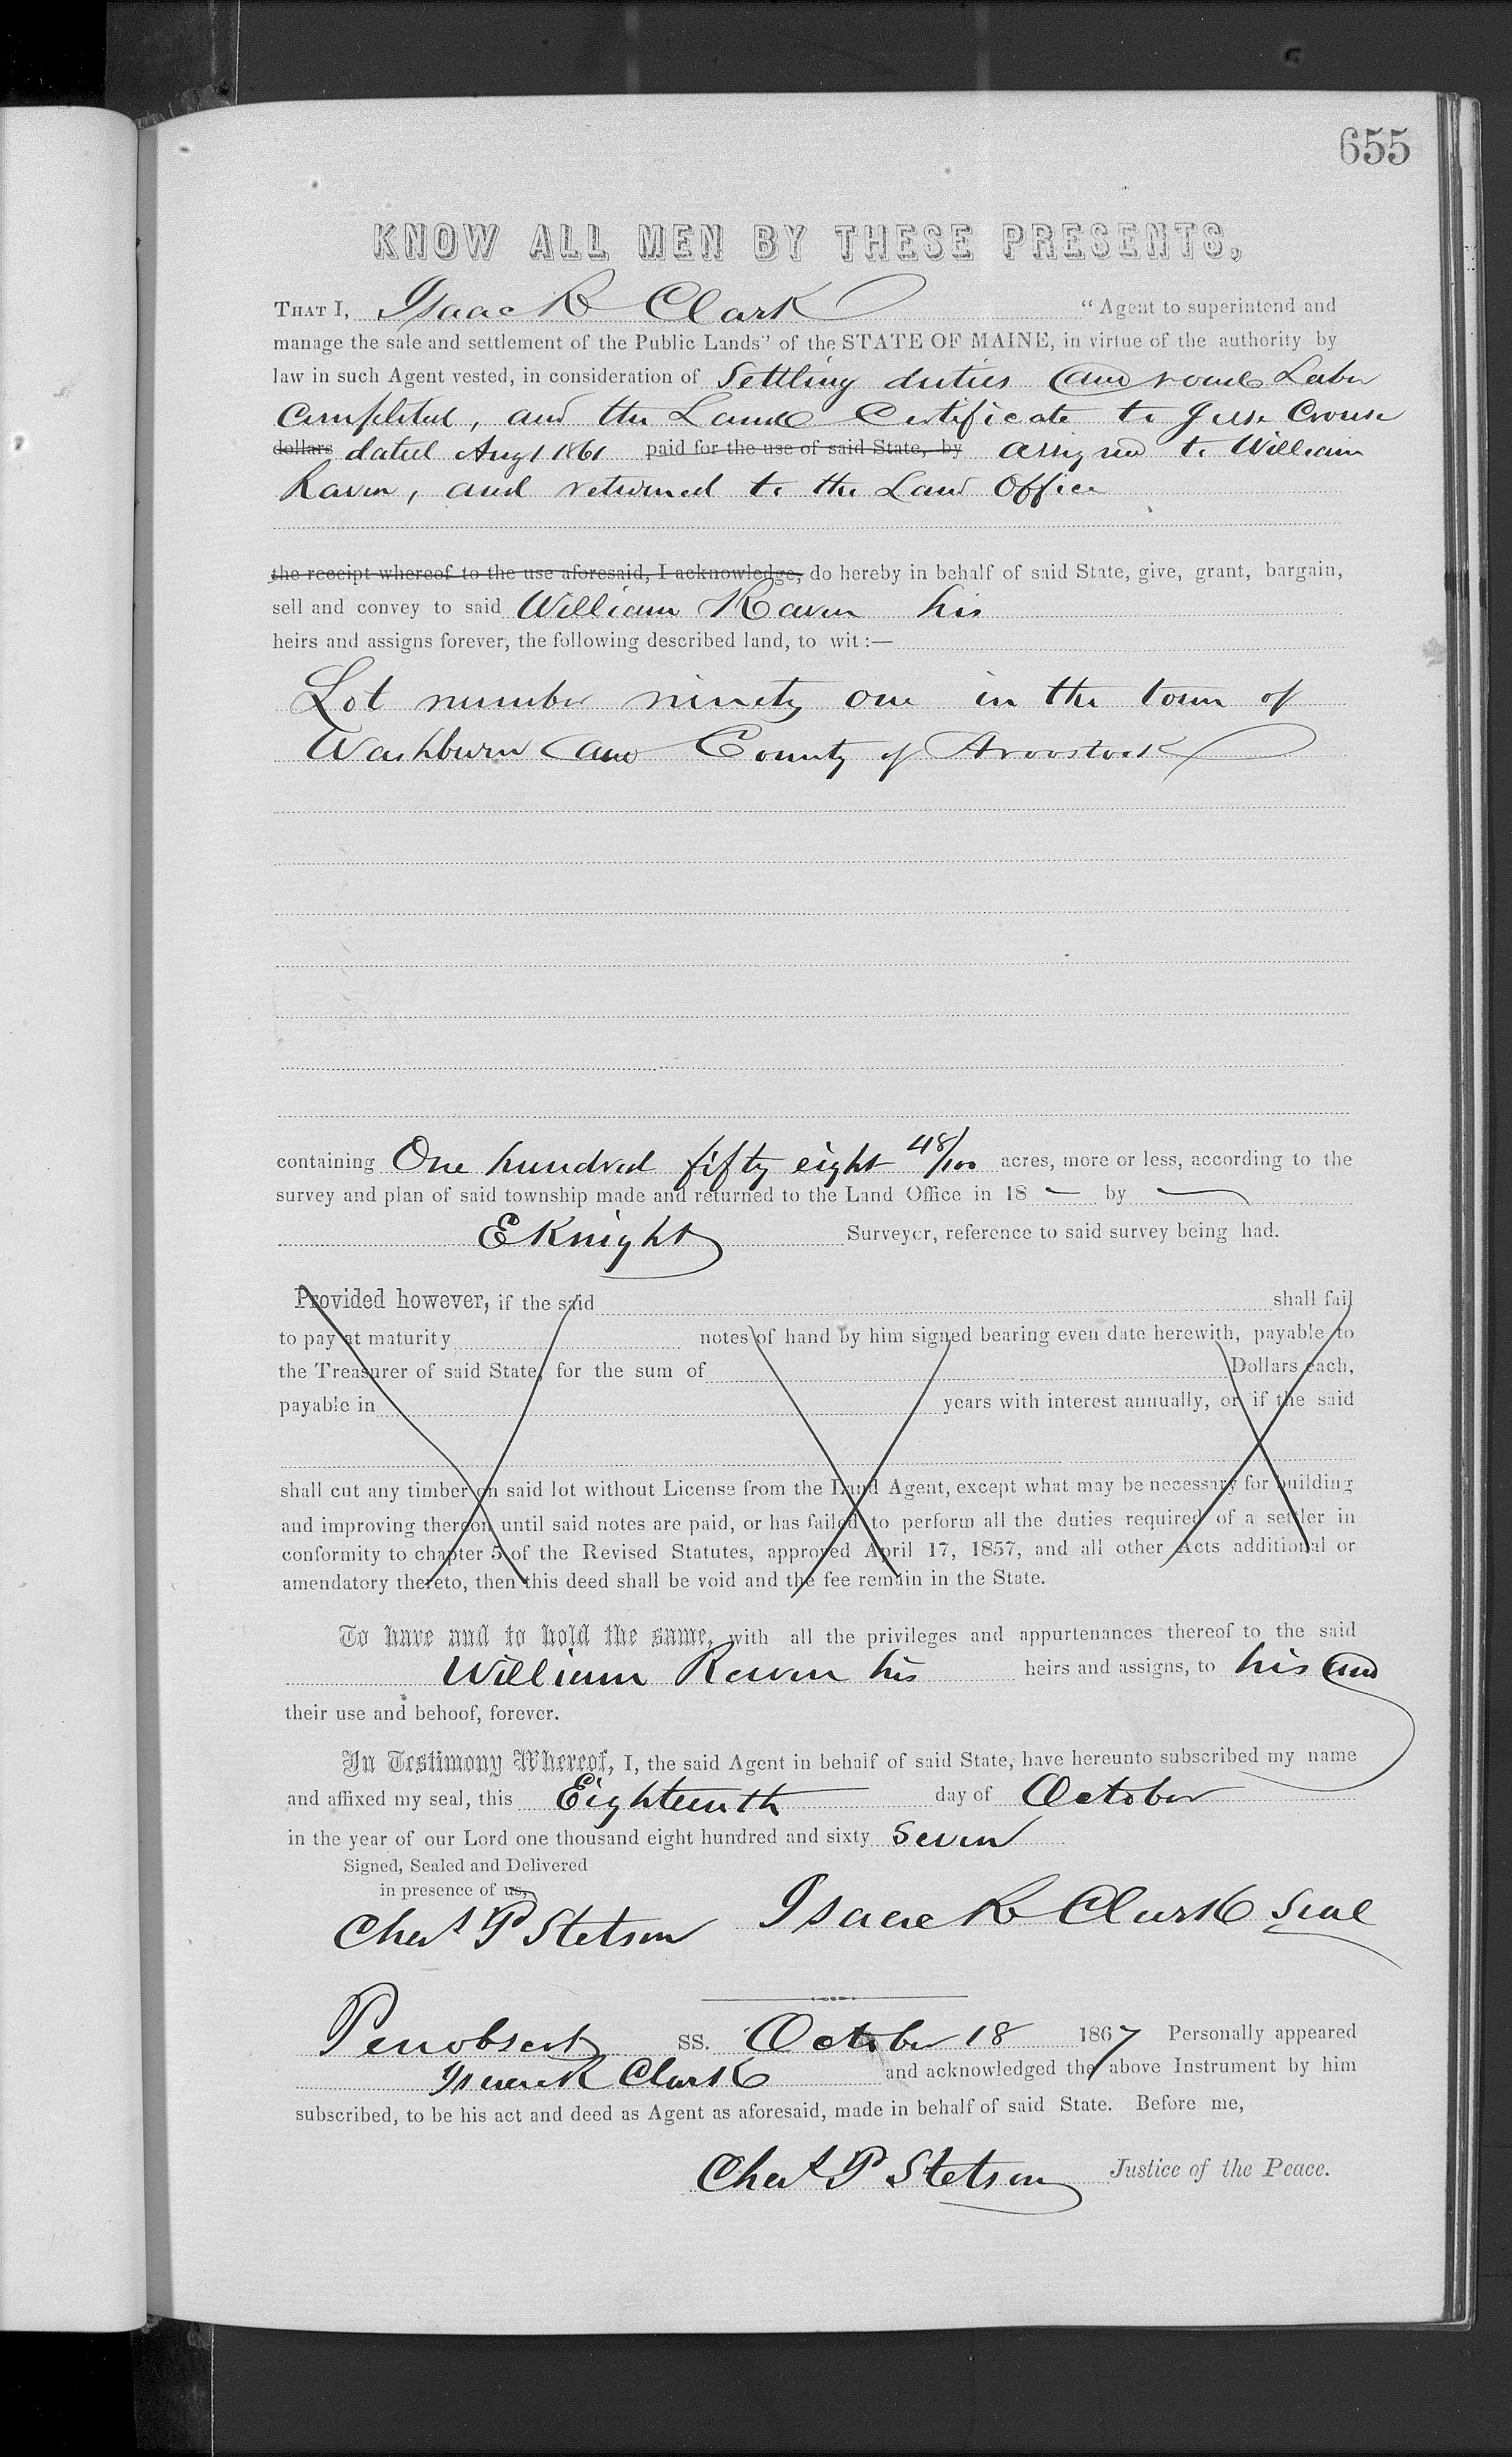 655
KNOW ALL MEN BY THESE PRESENTS,
THAT I, Isaac R Clark "Agent to superintend and
manage the sale and settlement of the Public Lands" of the STATE OF MAINE, in virtue of the authority by
law in such Agent vested, in consideration of Settling duties and road Labor
completed, and the Land Certificate to Jesse Crouse
dollars dated Aug 1 1861 paid for the use of said State, by assigned to William
Raven, and returned to the Land Office
the receipt whereof to the use aforesaid, I acknowledge, do hereby in behalf of said State, give, grant, bargain,
sell and convey to said William Raven his
heirs and assigns forever, the following described land, to wit:—
Lot number ninety one in the town of
Washburn and County of Aroostook
containing One hundred fifty eight 48/100 acres, more or less, according to the
survey and plan of said township made and returned to the Land Office in 18 — by —
E Knight Surveyor, reference to said survey being had.
Provided however, if the said shall fail
to pay at maturity notes of hand by him signed bearing even date herewith, payable to
the Treasurer of said State, for the sum of Dollars each,
payable in years with interest annually, or if the said
shall cut any timber on said lot without License from the Land Agent, except what may be necessary for building
and improving thereon until said notes are paid, or has failed to perform all the duties required of a settler in
conformity to chapter 5 of the Revised Statutes, approved April 17, 1857, and all other Acts additional or
amendatory thereto, then this deed shall be void and the fee remain in the State.
To have and to hold the same, with all the privileges and appurtenances thereof to the said
William Raven his heirs and assigns, to his and
their use and behoof, forever.
In Testimony Whereof, I, the said Agent in behalf of said State, have hereunto subscribed my name
and affixed my seal, this Eighteenth day of October
in the year of our Lord one thousand eight hundred and sixty Seven
Signed, Sealed and Delivered
in presence of us,
Chas P Stetson Isaac R Clark Seal
Penobscot SS. October 18 1867 Personally appeared
Isaac R Clark and acknowledged the above Instrument by him
subscribed, to be his act and deed as Agent as aforesaid, made in behalf of said State. Before me,
Chas P Stetson Justice of the Peace.